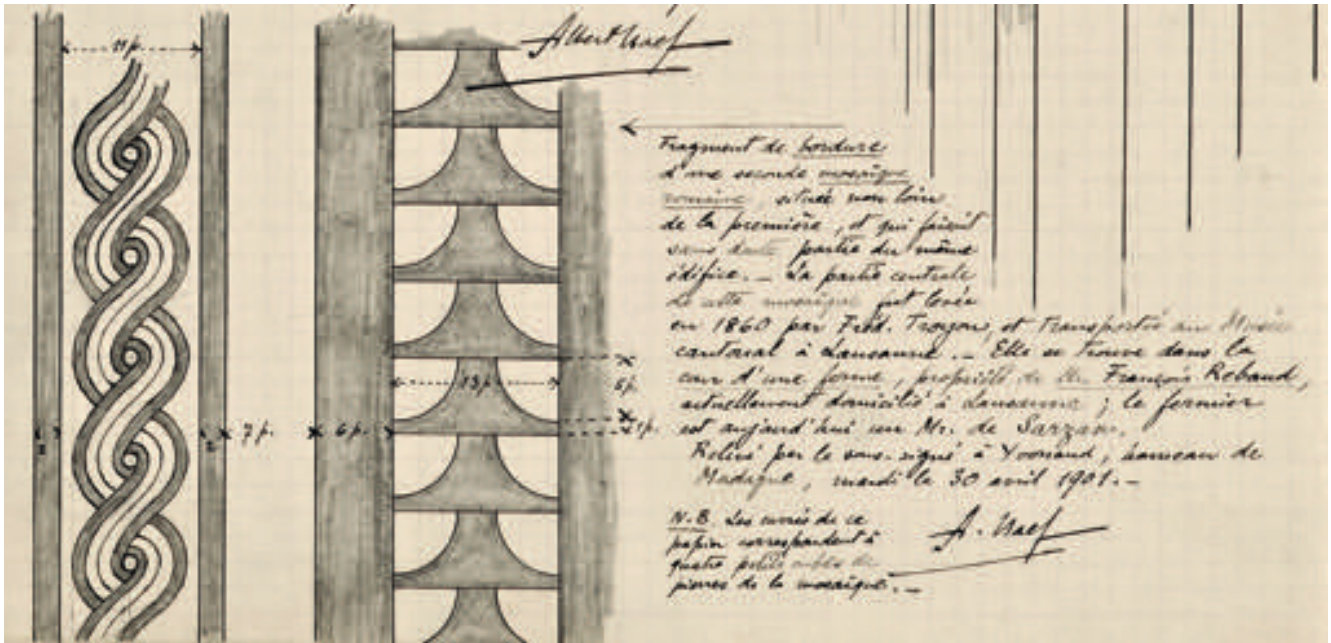 11 p.
Albert Naef
Fragment de bordure
d'une seconde mosaïque
romaine, située non loin
de la première, et qui faisait
sans doute partie du même
édifice. — La partie centrale
de cette mosaïque fut levée
en 1860 par Fréd. Troyon, et transportée au Musée
cantonal à Lausanne. — Elle se trouve dans la
cour d'une ferme, propriété de Mr. François Rebaud,
actuellement domicilié à Lausanne ; le fermier
est aujourd'hui un Mr. de Sarzan.
Relevé par le sous-signé à Yvonand, hameau de
Madague, mardi le 30 avril 1901. —
13 p.
5 p.
1 p.
2
7 p.
6 p.
N.B. Les carrés de ce
papier correspondent à
quatre petits cubes de
pierres de la mosaïque. —
A. Naef